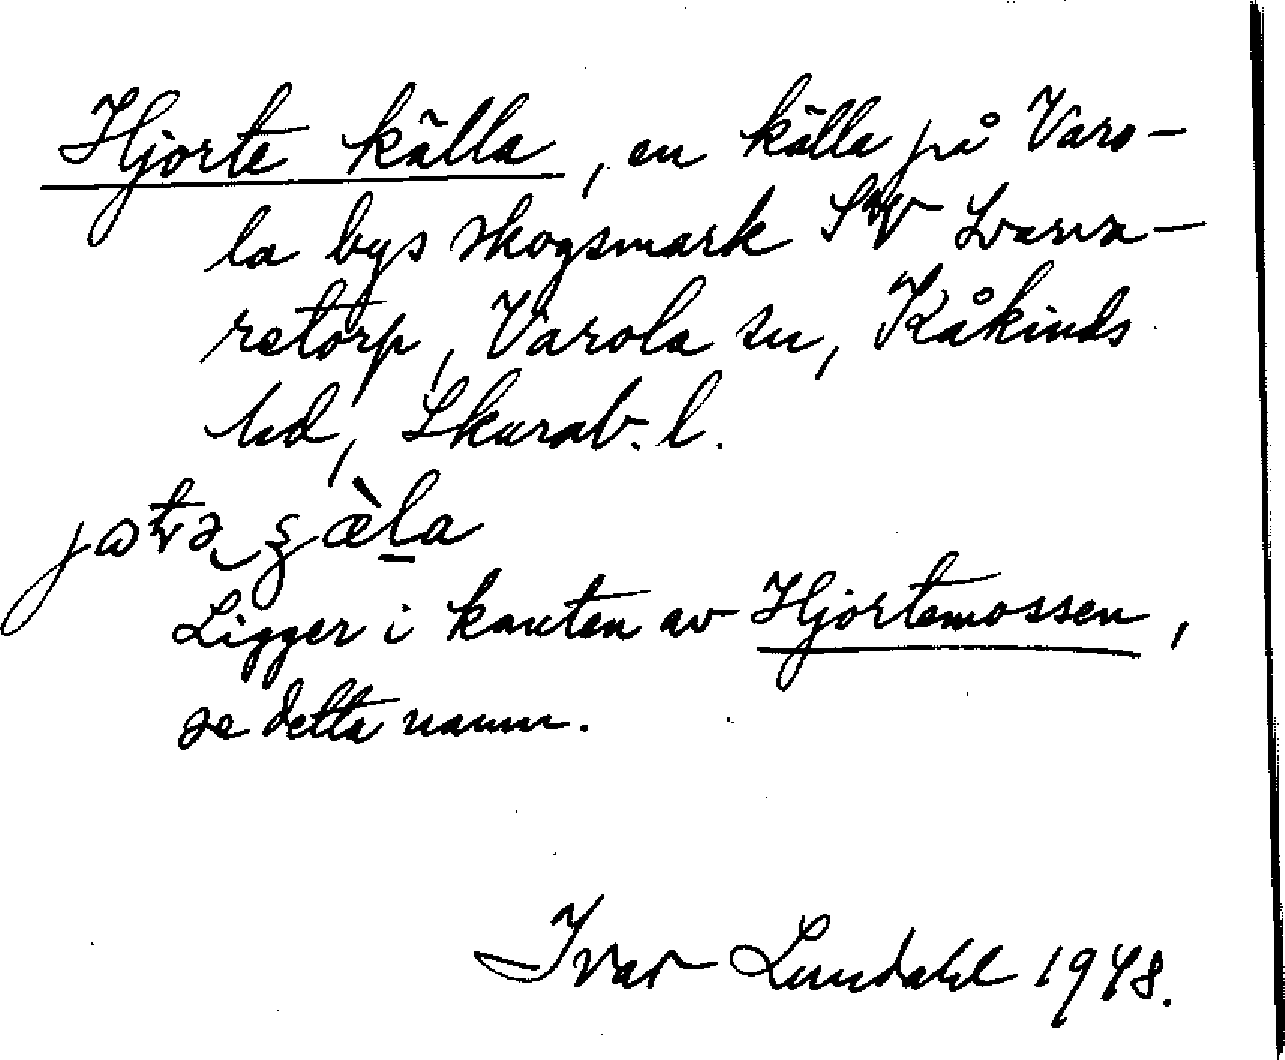 Hjorte källa, en källa på Varo-
la bys skogsmark SV
retorp, Varola sn, Kåkinds
hd, Skarab. l.
Ligger i kanten av Hjortemossen,
se detta namn.
Ivar Lundahl 1948.